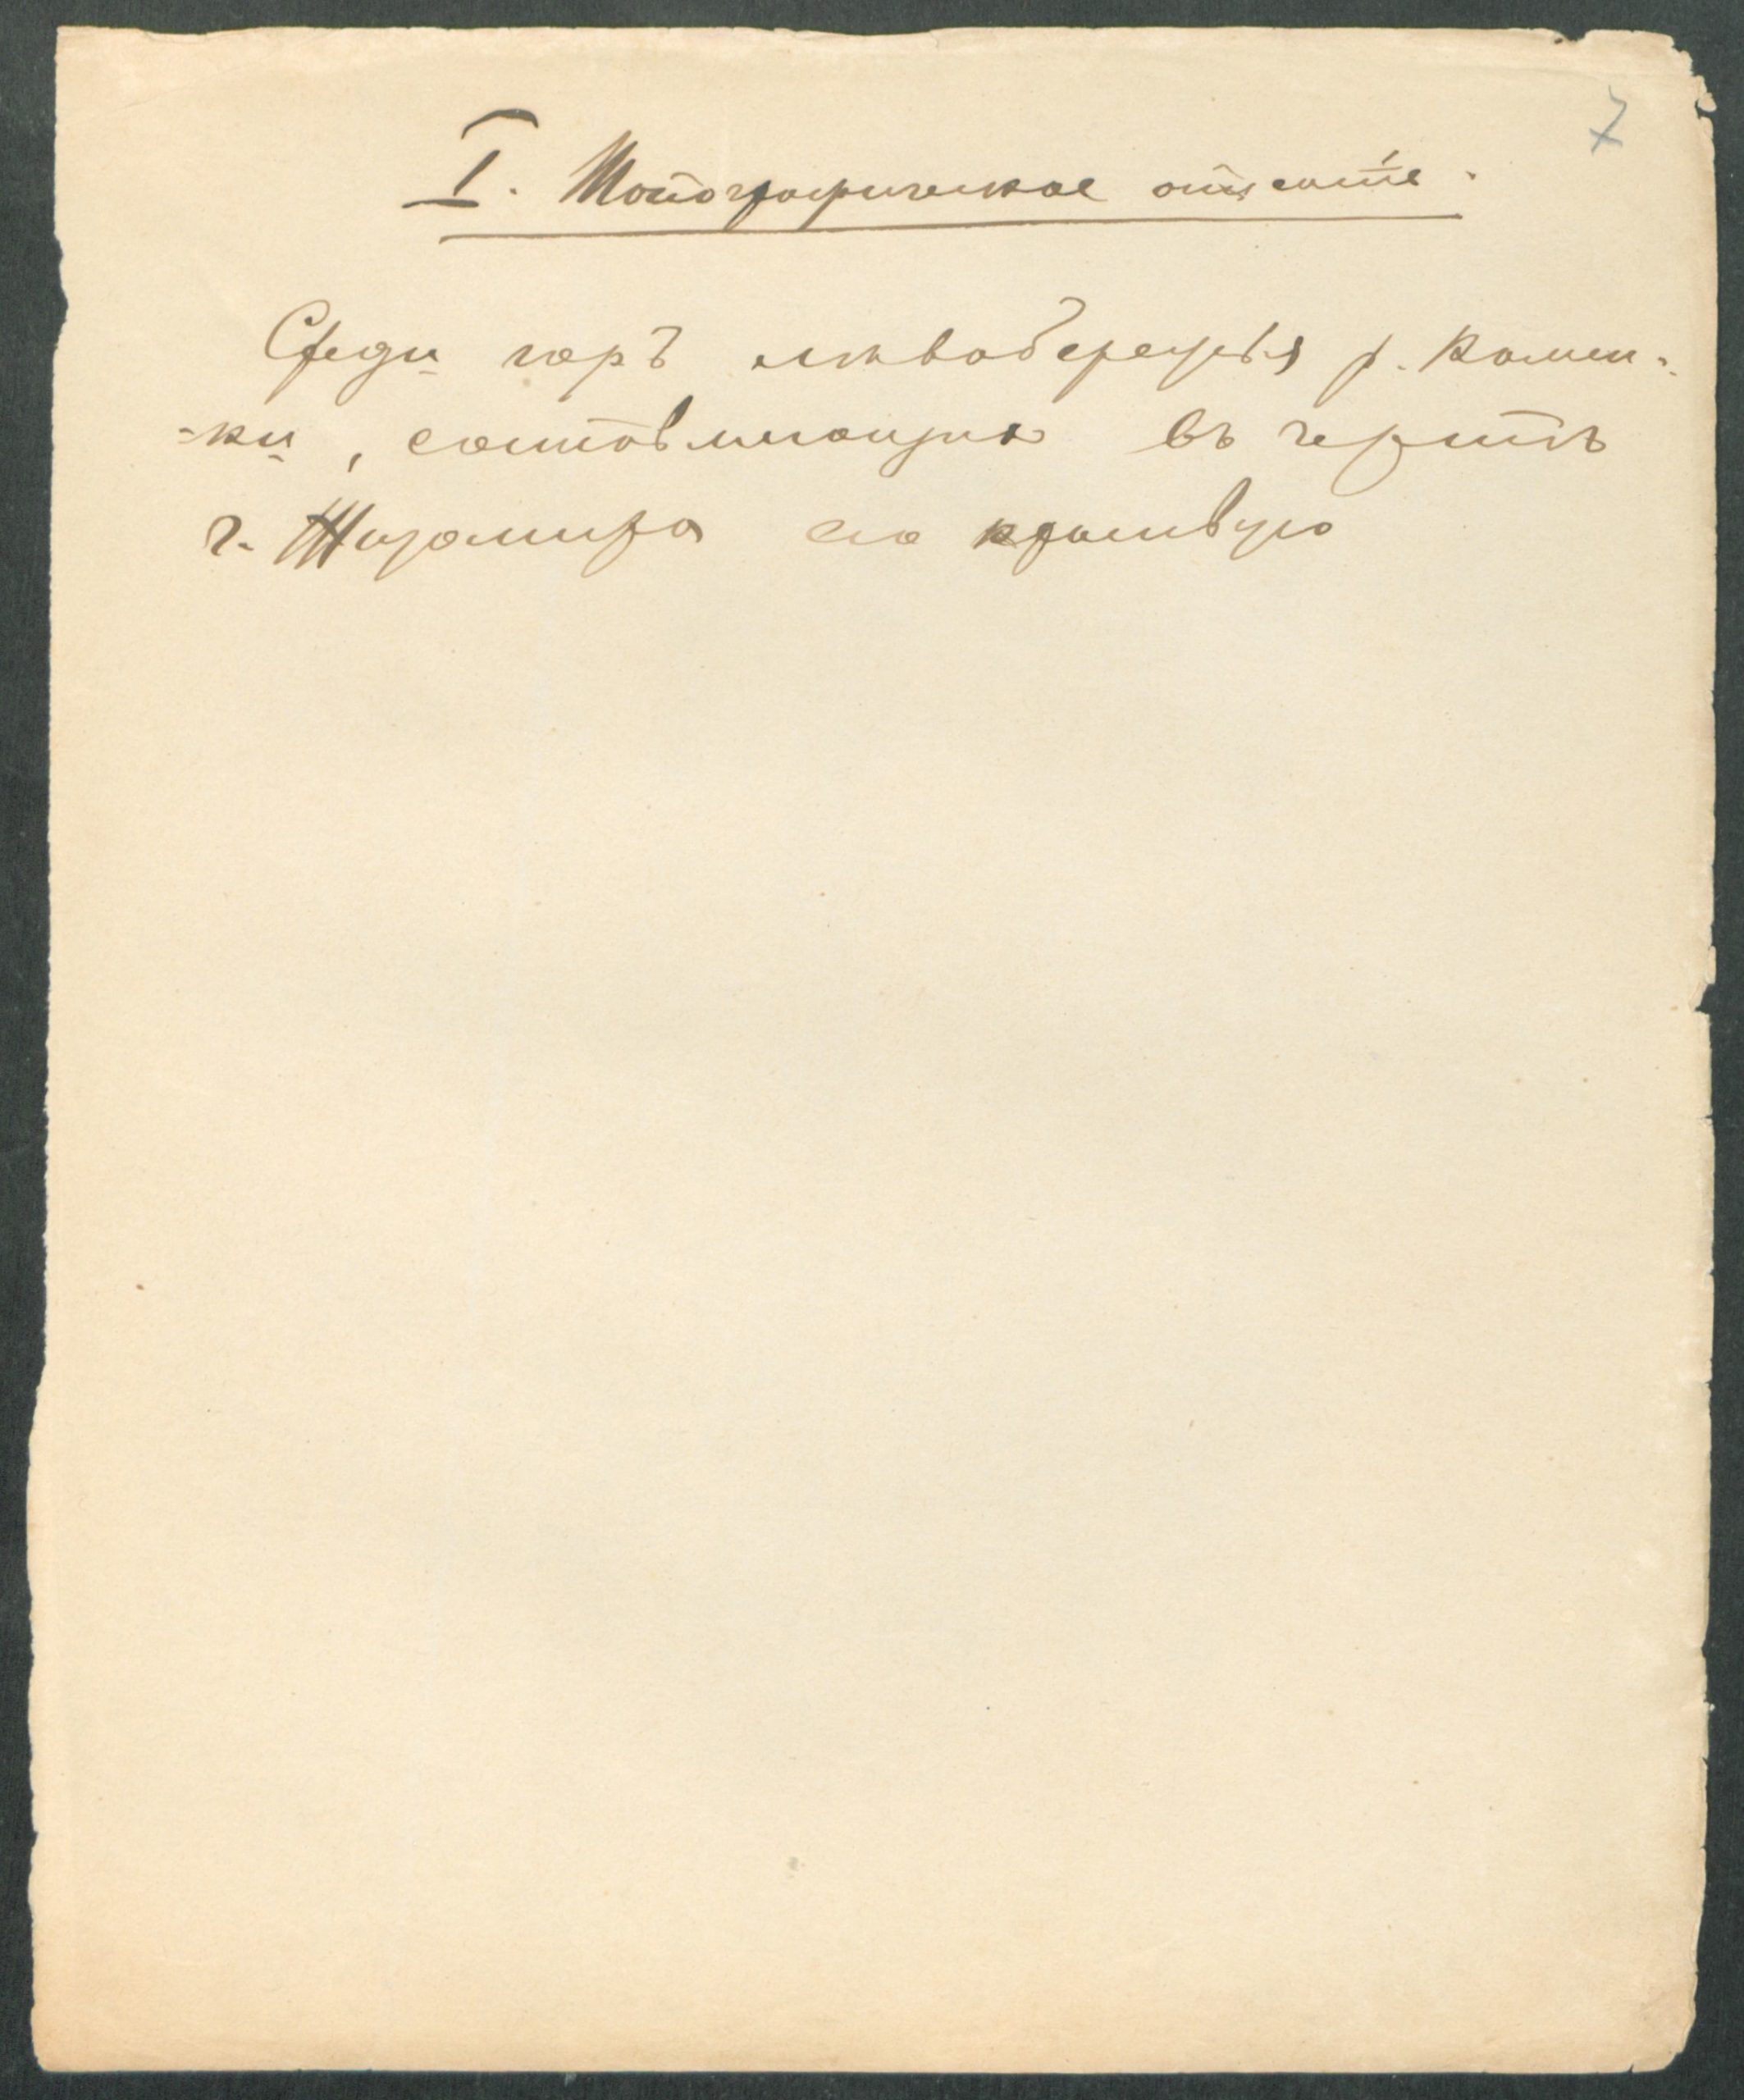 7
I. Топографическое описаніе.
Среди горъ лѣвобережья р. Камен-
-ки, составляющихъ въ чертѣ
г. Житомира его красивую